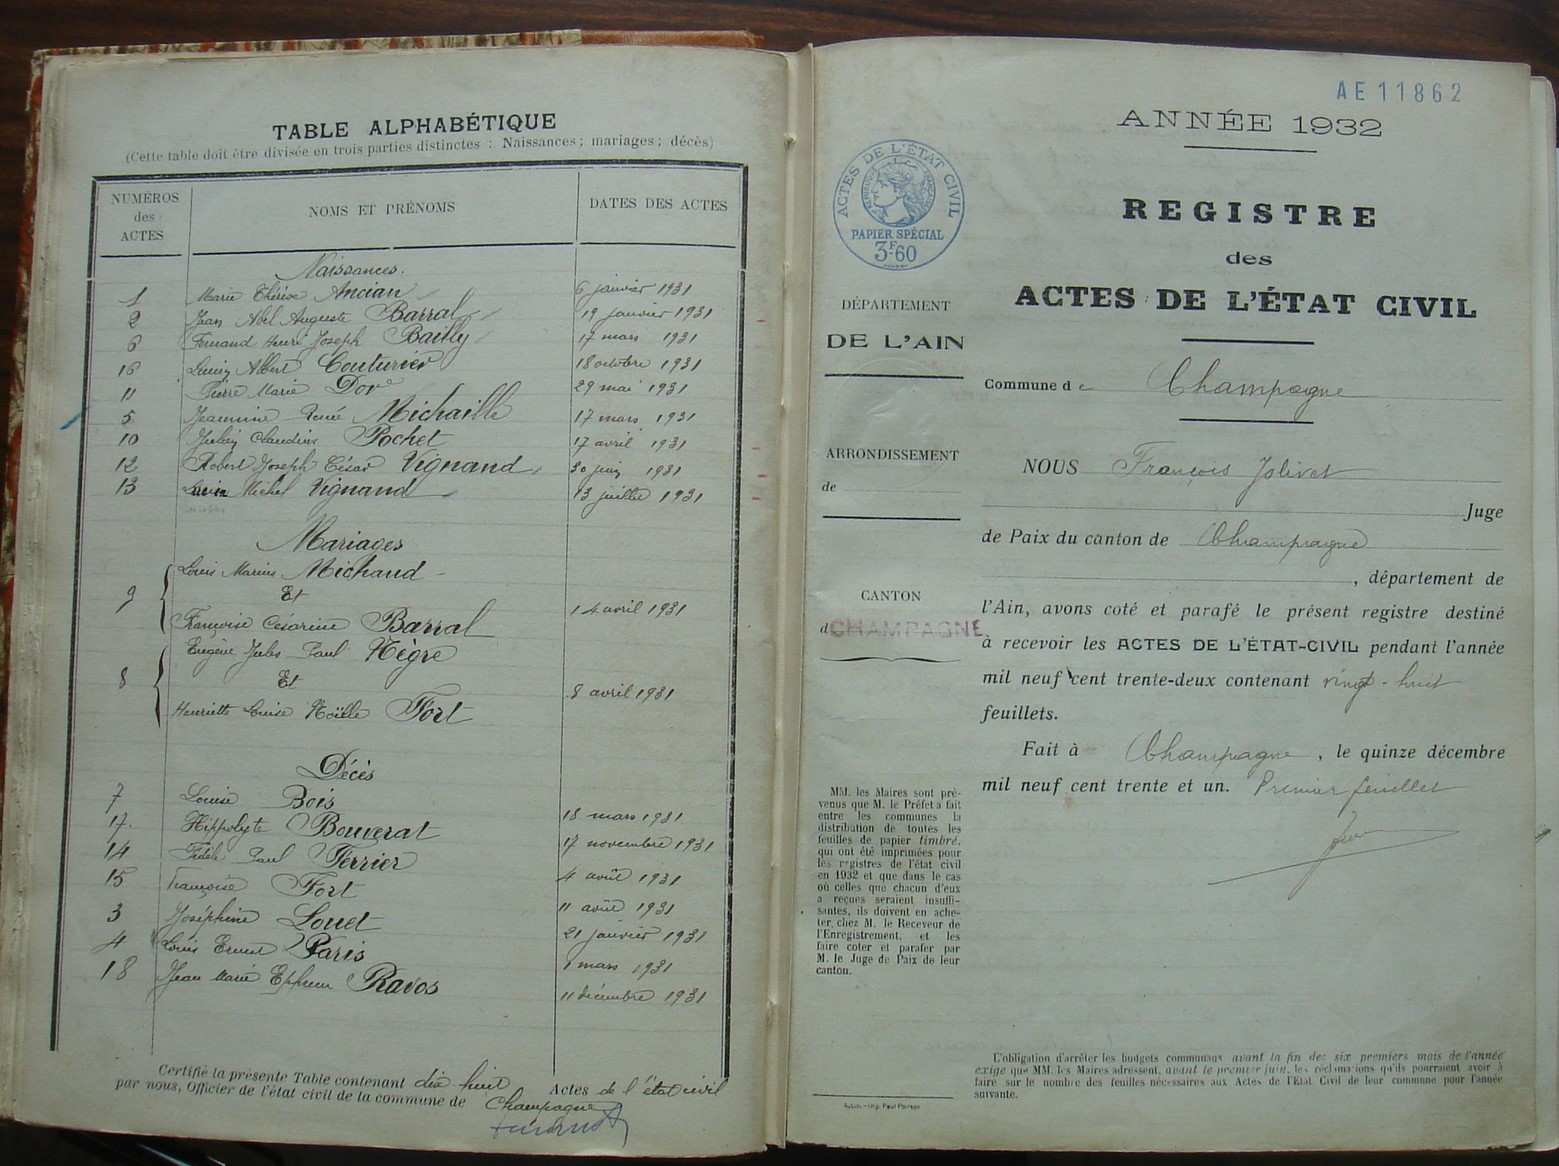 TABLE ALPHABÉTIQUE
(Cette table doit être divisée en trois parties distinctes : Naissances ; mariages ; décès)
NUMÉROS des ACTES
NOMS ET PRÉNOMS
DATES DES ACTES
Naissances.
1 Marie Thérèse Ancian 6 janvier 1931
2 Jean Abel Auguste Barral 19 janvier 1931
6 Fernand Henri Joseph Bailly 17 mars 1931
16 Albert Couturier 18 octobre 1931
11 Pierre Marie 29 mai 1931
5 Jeannine Renée Michaille 17 mars 1931
10 Claudius Pochet 17 avril 1931
12 Robert Joseph César Vignand 30 juin 1931
13 Michel Vignand 13 juillet 1931
Mariages
Louis Marius Michaud
Et
9 14 avril 1931
Françoise Cesarine Barral
Eugène Jules Paul Nègre
Et
8 8 avril 1931
Henriette Louise Noëlle Fort
Décès
7 Louise Bois 18 mars 1931
17. Hippolyte Bouverat 17 novembre 1931
14 Fidèle Paul Ferrier 4 août 1931
15 Françoise Fort 11 août 1931
3 Joséphine Louet 21 janvier 1931
4 Louis Ernest Paris 1 mars 1931
18 Jean Marie Ephrem Ravos 11 décembre 1931
Certifié la présente Table contenant dix huit Actes de l'état civil
par nous, Officier de l'état civil de la commune de Champagne
AE 11862
ANNÉE 1932
ACTES DE L'ÉTAT CIVIL
RÉPUBLIQUE FRANÇAISE
PAPIER SPÉCIAL
3F.60
REGISTRE
des
ACTES DE L'ÉTAT CIVIL
DÉPARTEMENT
DE L'AIN
ARRONDISSEMENT
de
CANTON
d CHAMPAGNE
MM. les Maires sont pré-
venus que M. le Préfet a fait
entre les communes la
distribution de toutes les
feuilles de papier timbré,
qui ont été imprimées pour
les registres de l'état civil
en 1932 et que dans le cas
où celles que chacun d'eux
a reçues seraient insuffi-
santes, ils doivent en ache-
ter chez M. le Receveur de
l'Enregistrement, et les
faire coter et parafer par
M. le Juge de Paix de leur
canton.
Commune de Champagne
NOUS François Jolivet
Juge
de Paix du canton de Champagne
, département de
l'Ain, avons coté et parafé le présent registre destiné
à recevoir les ACTES DE L'ÉTAT-CIVIL pendant l'année
mil neuf cent trente-deux contenant vingt-huit
feuillets.
Fait à Champagne, le quinze décembre
mil neuf cent trente et un. Premier feuillet
L'obligation d'arrêter les budgets communaux avant la fin des six premiers mois de l'année
exige que MM. les Maires adressent, avant le premier juin, les réclamations qu'ils pourraient avoir à
faire sur le nombre des feuilles nécessaires aux Actes de l'État Civil de leur commune pour l'année
suivante.